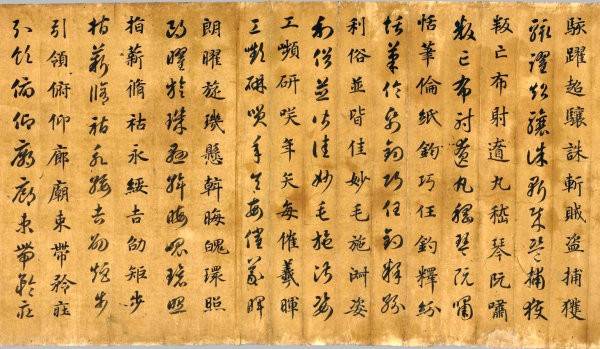 駭躍超驤誅斬賊盜捕獲
駭躍超驤誅斬賊盜捕獲
叛亡布射遼丸嵇琴阮嘯
叛亡布射遼丸嵇琴阮嘯
恬筆倫紙鈞巧任釣釋紛
恬筆倫紙鈞巧任釣釋紛
利俗並皆佳妙毛施淑姿
利俗並皆佳妙毛施淑姿
工嚬研咲年矢每催羲暉
工嚬研咲年矢每催羲暉
朗曜旋璣懸斡晦魄環照
朗曜旋璣懸斡晦魄環照
指薪脩祜永綏吉劭矩步
指薪脩祜永綏吉劭矩步
引領俯仰廊廟束帶矜莊
引領俯仰廊廟束帶矜莊